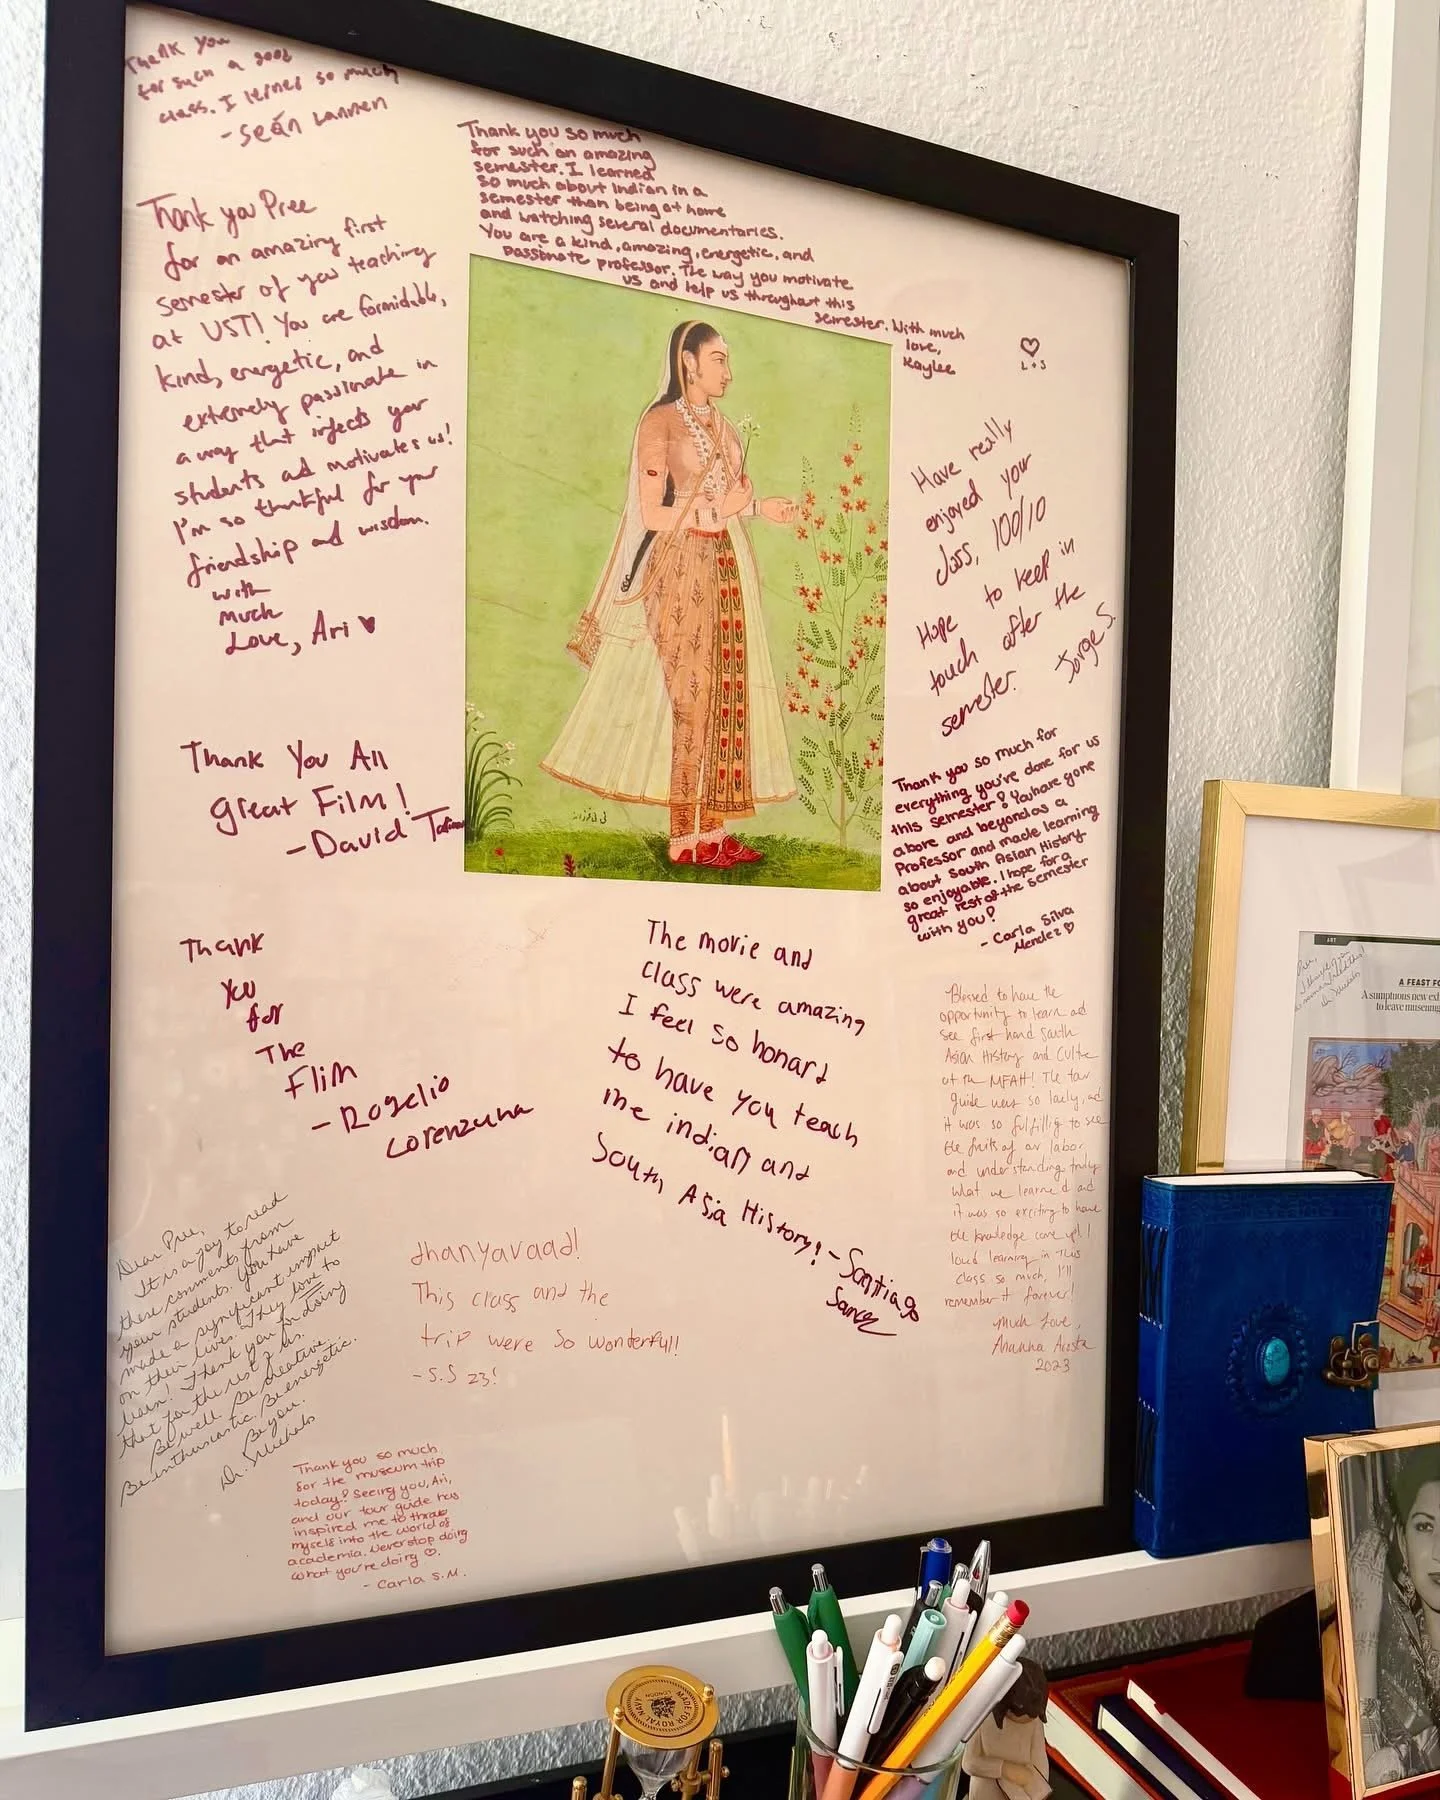 Thank you
for such a good
class. I lerned so much
- Seán Lannen
Thank you so much
for such an amazing
semester. I learned
so much about Indian in a
semester than being at home
and watching several documentaries.
You are a kind, amazing, energetic, and
passionate professor. The way you motivate
us and help us throughout this
semester. With much
love,
Kaylee
L+S
Thank you Pree
for an amazing first
semester of you teaching
at UST! You are formidable,
kind, energetic, and
extremely passionate in
a way that infects your
students and motivates us!
I'm so thankful for your
friendship and wisdom.
with
much
Love, Ari ♥
Have really
enjoyed your
class, 100/10
Hope to keep in
touch after the
semester. Jorge S.
Thank You All
great Film!
- David
Thank you so much for
everything you've done for us
this semester! You have gone
above and beyond as a
Professor and made learning
about South Asian History
so enjoyable. I hope for a
great rest of the semester
with you!
- Carla Silva
Mendez ♡
Thank
you
for
The
Flim
- Rogelio
Lorenzana
The movie and
class were amazing
I feel so honard
to have you teach
me indian and
South Asia History! - Santiago
Blessed to have the
opportunity to learn and
see first hand South
Asian History and Culture
at the MFAH! The tour
guide was so lovely, and
it was so fulfilling to see
the fruits of our labor
and understanding truly
what we learned and
it was so exciting to have
the knowledge come up! I
loved learning in this
class so much, I'll
remember it forever!
much Love,
Ananna Acosta
2023
Dear Pree,
It is a joy to read
these comments from
your students. You have
made a significant impact
on their lives. They love to
learn! Thank you for doing
that for the rest of us.
Be well. Be creative.
Be enthusiastic. Be energetic.
Be you.
Dr. S Nichols
dhanyavaad!
This class and the
trip were so wonderful!!
- S.S 23!
Thank you so much
for the museum trip
today! Seeing you, Ari,
and our tour guide has
inspired me to throw
myself into the world of
academia. Never stop doing
what you're doing ♡.
- Carla S.M.
ART
A FEAST FO
A sumptuous new ex
to leave museum
MADE FOR ROYAL NAVY
LONDON